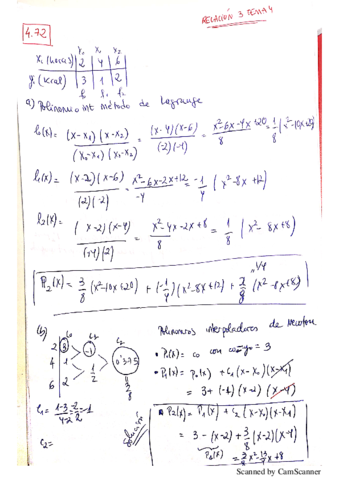 RELACIÓN 3 TEMA 4
4.72
x₀ x₁ x₂
xᵢ (horas) 2 4 6
yᵢ (kcal) 3 1 2
f₀ f₁ f₂
a) Polinomio int método de Lagrange
l₀(x) = (x-x₁)(x-x₂) / (x₀-x₁)(x₀-x₂) = (x-4)(x-6) / (-2)(-4) = x²-6x-4x+20 / 8 = 1/8 (x²-10x+20)
l₁(x) = (x-2)(x-6) / (2)(-2) = x²-6x-2x+12 / -4 = -1/4 (x²-8x+12)
l₂(x) = (x-2)(x-4) / (+4)(2) = x²-4x-2x+8 / 8 = 1/8 (x²-8x+8)
P₂(x) = 3/8 (x²-10x+20) + (-1/4)(x²-8x+12) + 2/8 (x²-8x+8)
(b)
Polinomios interpoladores de Newton
2 3
4 1 -1
6 2 1/2 0'375
3/8
• P₀(x) = c₀ con c₀=y₀= 3
• P₁(x) = P₀(x) + c₁(x-x₀)(x-x₁)
= 3+(-1)(x-2)(x-4)
c₁ = 1-3 / 4-2 = -2/2 = -1
c₂=
• P₂(x) = P₁(x) + c₂ (x-x₀)(x-x₁)
= 3-(x-2)+3/8 (x-2)(x-4)
P₁(x)
Scanned by CamScanner